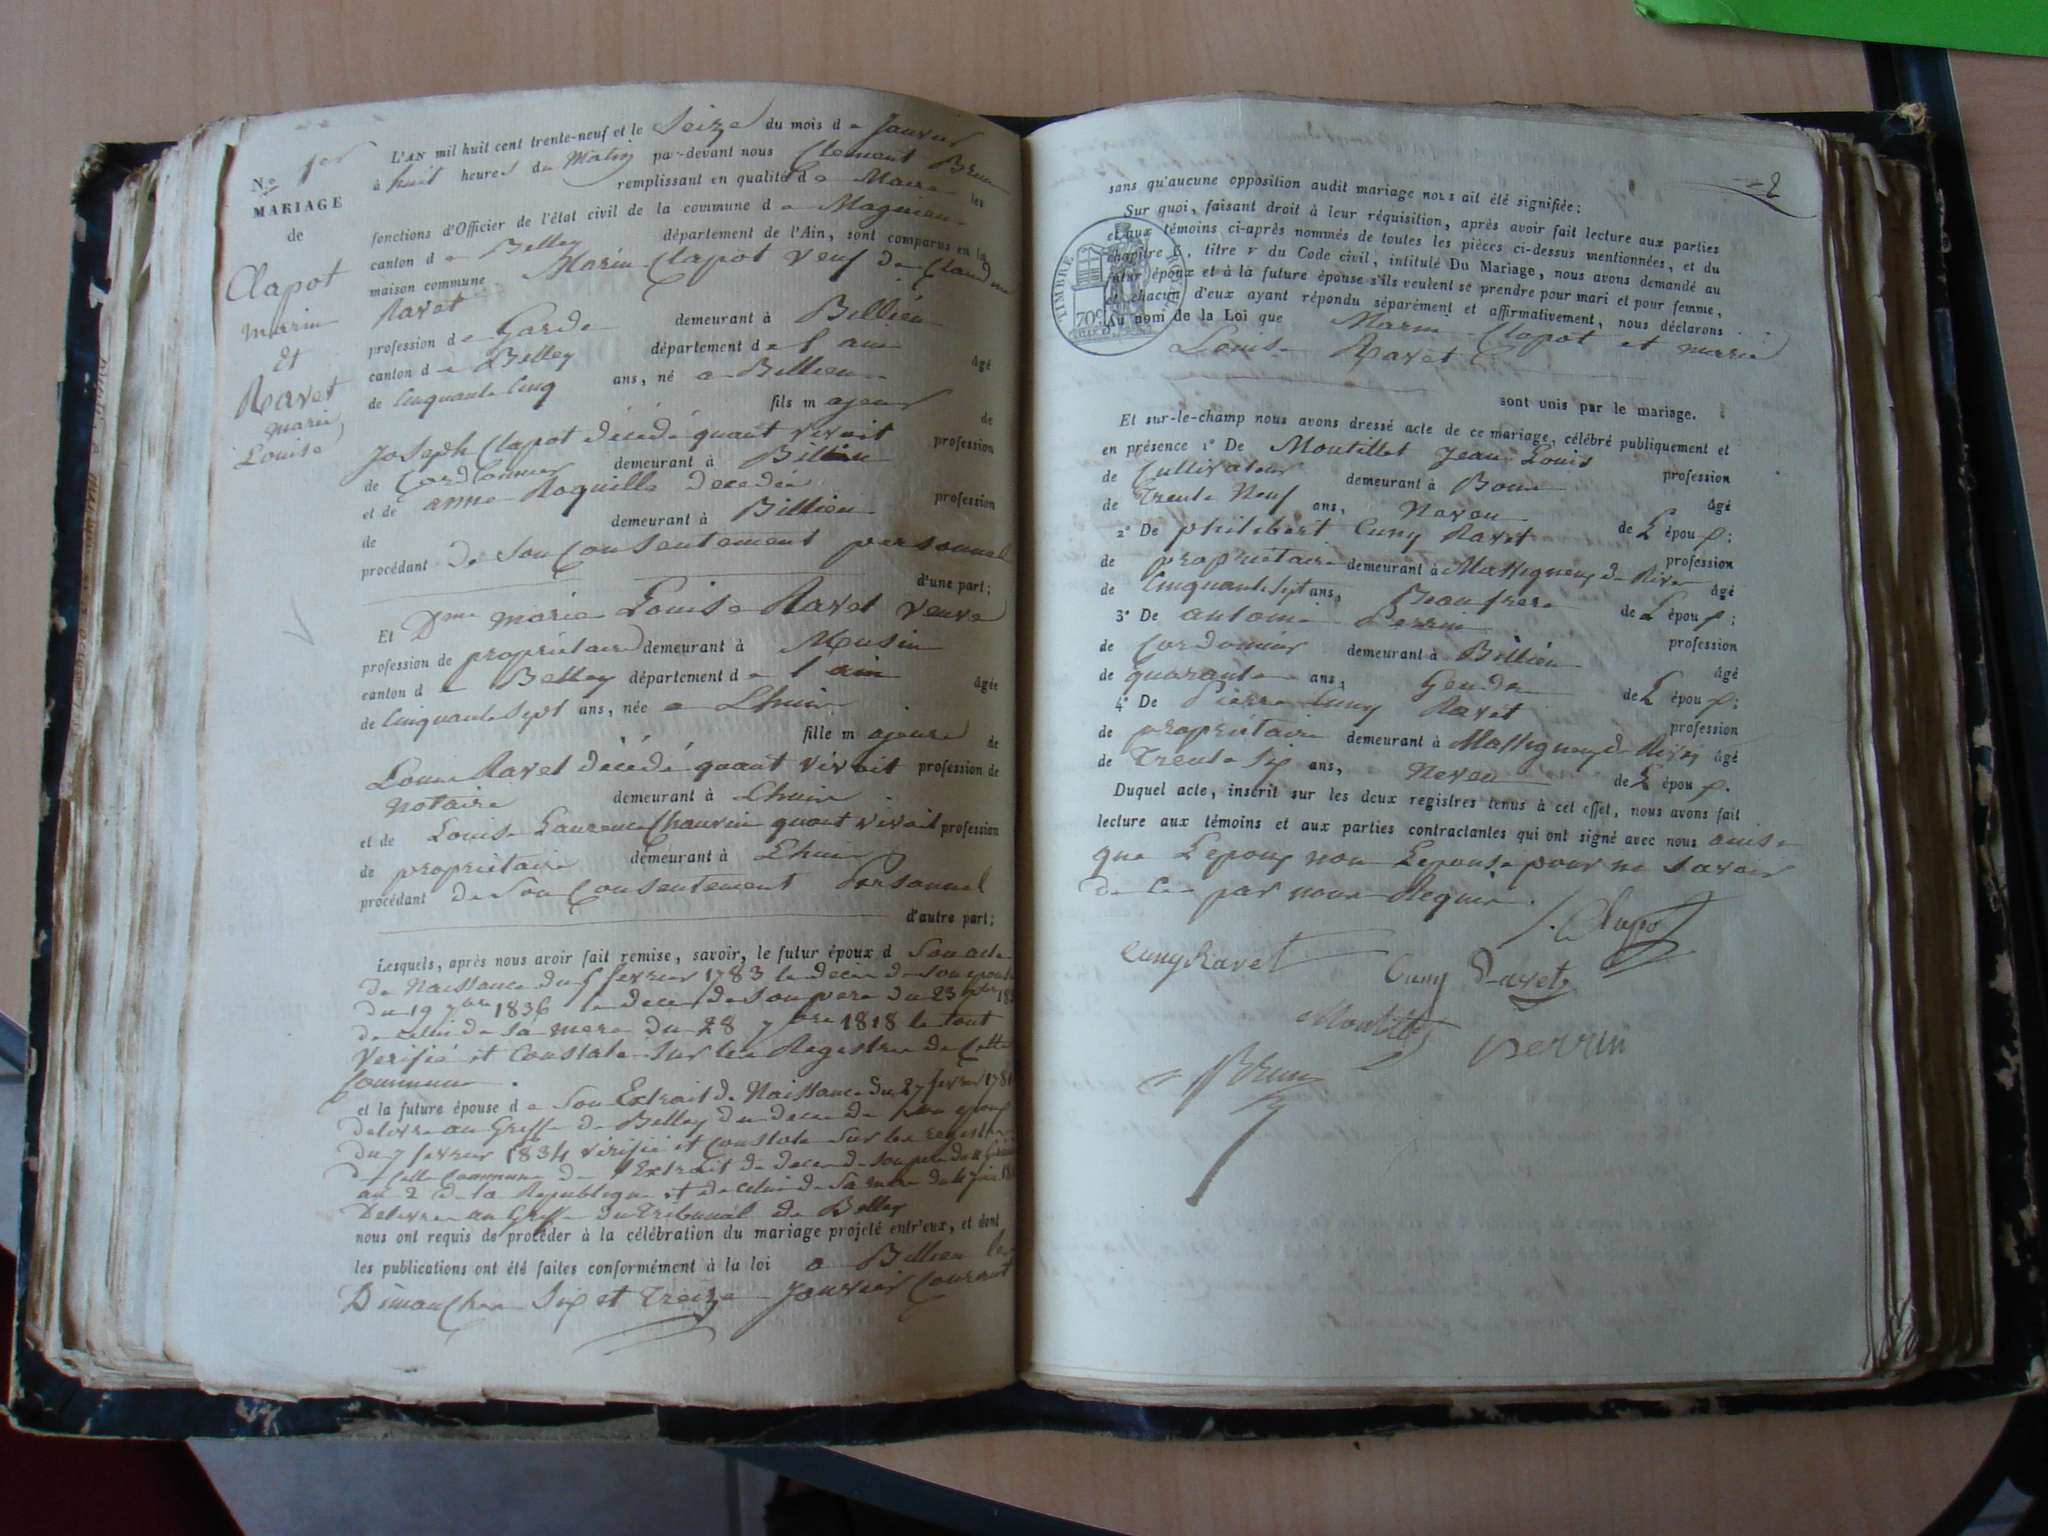 N.o 1er
MARIAGE
de
Clapot
marin
Et
Ravet
marie
Louise
L'AN mil huit cent trente-neuf et le Seize du mois de Janvier
à huit heures du Matin par-devant nous Clement Brun
remplissant en qualité de Maire les
fonctions d'Officier de l'état civil de la commune de Magnieu
canton de Belley département de l'Ain, sont comparus en la
maison commune Marin Clapot veuf de Claudine
Ravet
profession de Garde demeurant à Billieu
canton de Belley département de l'ain âgé
de Cinquante Cinq ans, né a Billieu
fils majeur de
Joseph Clapot décédé quant vivait profession
de Cordonnier demeurant à Billieu
et de anne Roquille decedée profession
de demeurant à Billieu
procédant de Son Consentement personnel
d'une part;
Et Dme marie Louise Ravet veuve
profession de propriétaire demeurant à Musin
canton de Belley département de l'ain âgée
de Cinquante Sept ans, née a Lhuis
fille majeure de
Louis Ravet décédé quant vivait profession de
notaire demeurant à Lhuis
et de Louise Laurence Chauvin quant vivait profession
de propriétaire demeurant à Lhuis
procédant de Son Consentement Personnel
d'autre part;
Lesquels, après nous avoir fait remise, savoir, le futur époux d Son acte
de Naissance du fevrier 1783 le deces de Son epouse
du 19 7bre 1836 le deces de Son pere du 23
de celui de Sa mere du 28 7bre 1818 le tout
Verifié et Constaté Sur les Registres de Cette
Commune.
et la future épouse de Son Extrait de Naissance du 27 fevrier 1781
delivré au Greffe de Belley du deces de Son epoux
du 7 fevrier 1834 verifié et Constaté Sur les registres
de Cette Commune de l'Extrait de deces de Son pere du
an 2 de la Republique et de celui de Sa mere du
Delivrés au Greffe du Tribunal de Belley
nous ont requis de procéder à la célébration du mariage projeté entr'eux, et dont
les publications ont été faites conformément à la loi a Billieu les
Dimanches Six et Treize Janvier Courant
2
sans qu'aucune opposition audit mariage nous ait été signifiée;
Sur quoi, faisant droit à leur réquisition, après avoir fait lecture aux parties
et aux témoins ci-après nommés de toutes les pièces ci-dessus mentionnées, et du
chapitre 6, titre v du Code civil, intitulé Du Mariage, nous avons demandé au
futur époux et à la future épouse s'ils veulent se prendre pour mari et pour femme,
et chacun d'eux ayant répondu séparément et affirmativement, nous déclarons
Au nom de la Loi que Marin Clapot et marie
Louise Ravet
TIMBRE
70c
sont unis par le mariage.
Et sur-le-champ nous avons dressé acte de ce mariage, célébré publiquement et
en présence 1° De Moutillet Jean Louis profession
de Cultivateur demeurant à Bons âgé
de Trente Neuf ans, Neveu de L'époux;
2° De philibert Cuny Ravet profession
de propriétaire demeurant à Massigneux de Rives âgé
de Cinquante Sept ans, Beaufrere de L'époux;
3° De antoine Perrin profession
de Cordonnier demeurant à Billieu âgé
de quarante ans, Gendre de L'époux;
4° De Pierre Cuny Ravet profession
de propriétaire demeurant à Massigneux de Rives âgé
de Trente Six ans, Neveu de L'époux.
Duquel acte, inscrit sur les deux registres tenus à cet effet, nous avons fait
lecture aux témoins et aux parties contractantes qui ont signé avec nous ainsi
que L'epoux non L'epouse pour ne Savoir
de Ce par nous Requise.
Clapot
Cuny Ravet
Cuny Ravet
Moutillet
Perrin
Brun